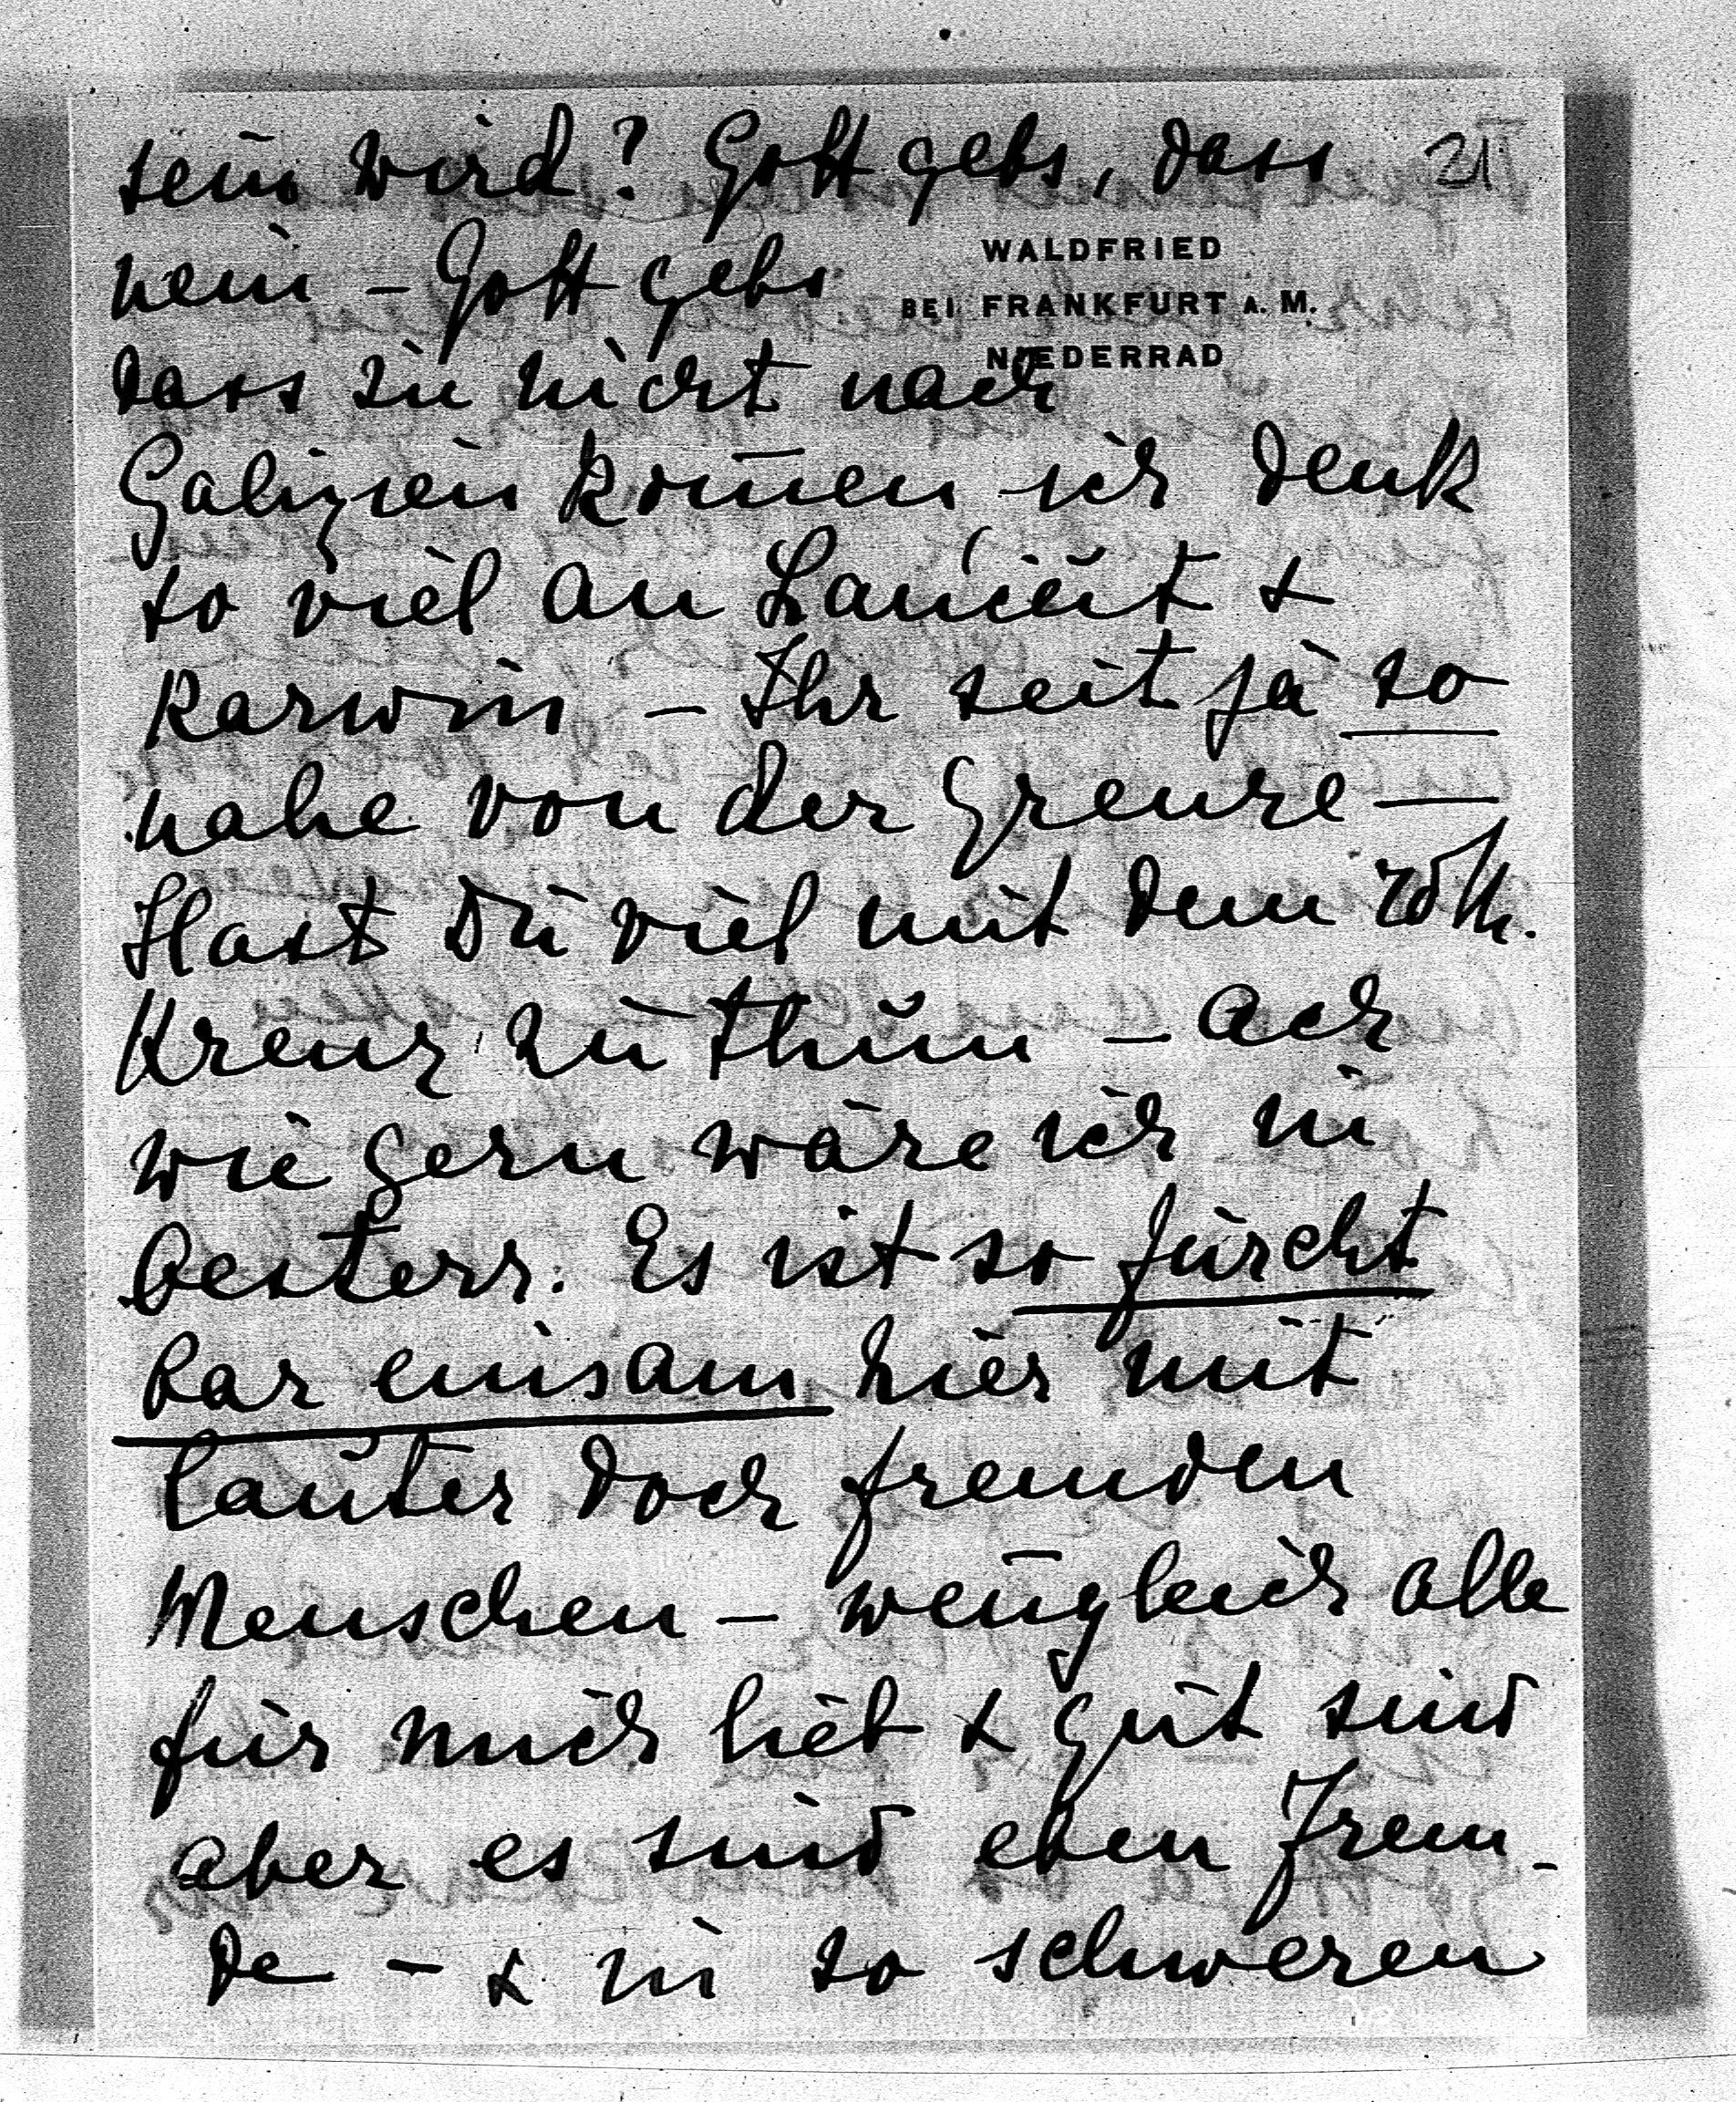 sein wird? Gott gebs, dass 21
nein – Gott gebs
WALDFRIED
BEI FRANKFURT A. M.
NIEDERRAD
dass sie nicht nach
Galizien kom̄en ich denk
so viel an Lancut +
Karwin – Ihr seit ja so
nahe von der Grenze –
Hast Du viel mit dem roth.
Kreuz zu thun – ach
wie gern wäre ich in
Oesterr. Es ist so furcht
bar einsam hier mit
lauter doch fremden
Menschen – wen̄gleich alle
für mich lieb + gut sind
aber es sind eben Frem-
de – + in so schweren